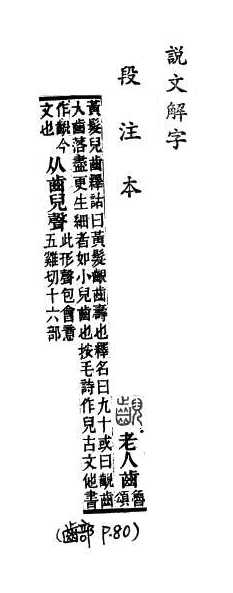 說文解字
段注本
齯 老人齒
魯
頌
黃髮兒齒釋詁曰黃髮齯齒壽也釋名曰九十或曰齯齒
大齒落盡更生細者如小兒齒也按毛詩作兒古文他書
作齯今
文也
从齒兒聲
此形聲包會意
五雞切十六部
(齒部 P.80)